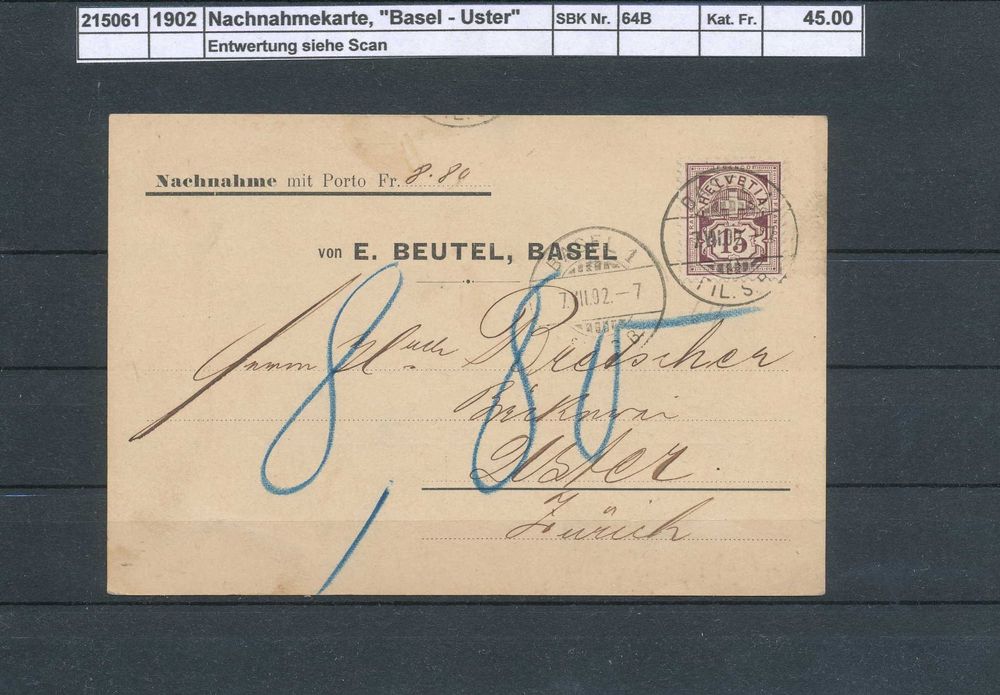 215061 1902 Nachnahmekarte, "Basel - Uster" SBK Nr. 64B Kat. Fr. 45.00
Entwertung siehe Scan
Nachnahme mit Porto Fr. 8.80
HELVETIA
15
BASEL 1
7.VII.02.-7
FIL. S.B.
von E. BEUTEL, BASEL
BASEL 1
7.VII.02.-7
Herrn
Uster
Zürich
8,80